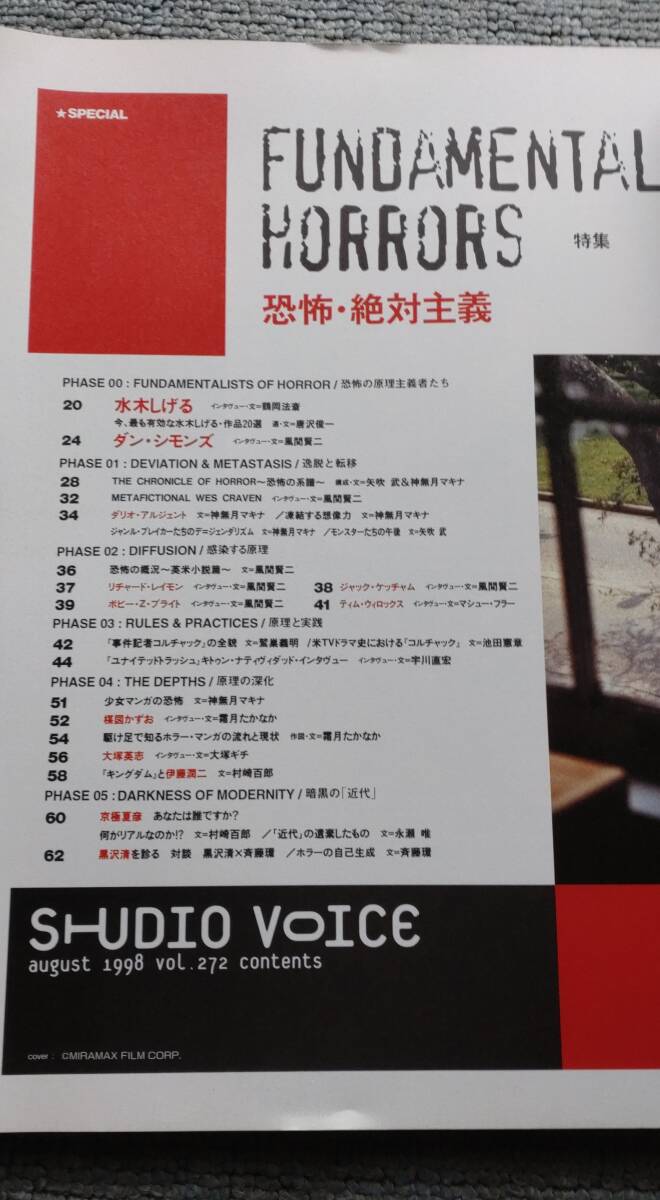 ★SPECIAL
FUNDAMENTAL
HORRORS 特集
恐怖・絶対主義
PHASE 00 : FUNDAMENTALISTS OF HORROR / 恐怖の原理主義者たち
20 水木しげる インタヴュー・文=鶴岡法斎
今、最も有効な水木しげる・作品20選 選・文=唐沢俊一
24 ダン・シモンズ インタヴュー・文=風間賢二
PHASE 01 : DEVIATION & METASTASIS / 逸脱と転移
28 THE CHRONICLE OF HORROR〜恐怖の系譜〜 構成・文=矢吹 武&神無月マキナ
32 METAFICTIONAL WES CRAVEN インタヴュー・文=風間賢二
34 ダリオ・アルジェント 文=神無月マキナ /凍結する想像力 文=神無月マキナ
ジャンル・ブレイカーたちのデ=ジェンダリズム 文=神無月マキナ /モンスターたちの午後 文=矢吹 武
PHASE 02 : DIFFUSION / 感染する原理
36 恐怖の概況〜英米小説篇〜 文=風間賢二
37 リチャード・レイモン インタヴュー・文=風間賢二 38 ジャック・ケッチャム インタヴュー・文=風間賢二
39 ポピー・Z・ブライト インタヴュー・文=風間賢二 41 ティム・ウィロックス インタヴュー・文=マシュー・フラー
PHASE 03 : RULES & PRACTICES / 原理と実践
42 「事件記者コルチャック」の全貌 文=鷲巣義明 /米TVドラマ史における「コルチャック」 文=池田憲章
44 「ユナイテッドトラッシュ」キトゥン・ナティヴィダッド・インタヴュー インタヴュー・文=宇川直宏
PHASE 04 : THE DEPTHS / 原理の深化
51 少女マンガの恐怖 文=神無月マキナ
52 楳図かずお インタヴュー・文=霜月たかなか
54 駆け足で知るホラー・マンガの流れと現状 作図・文=霜月たかなか
56 大塚英志 インタヴュー・文=大塚ギチ
58 「キングダム」と伊藤潤二 文=村崎百郎
PHASE 05 : DARKNESS OF MODERNITY / 暗黒の「近代」
60 京極夏彦 あなたは誰ですか?
何がリアルなのか!? 文=村崎百郎 /「近代」の遺棄したもの 文=永瀬 唯
62 黒沢清を診る 対談 黒沢清×斉藤環 /ホラーの自己生成 文=斉藤環
STUDIO VOICE
august 1998 vol.272 contents
cover : ©MIRAMAX FILM CORP.